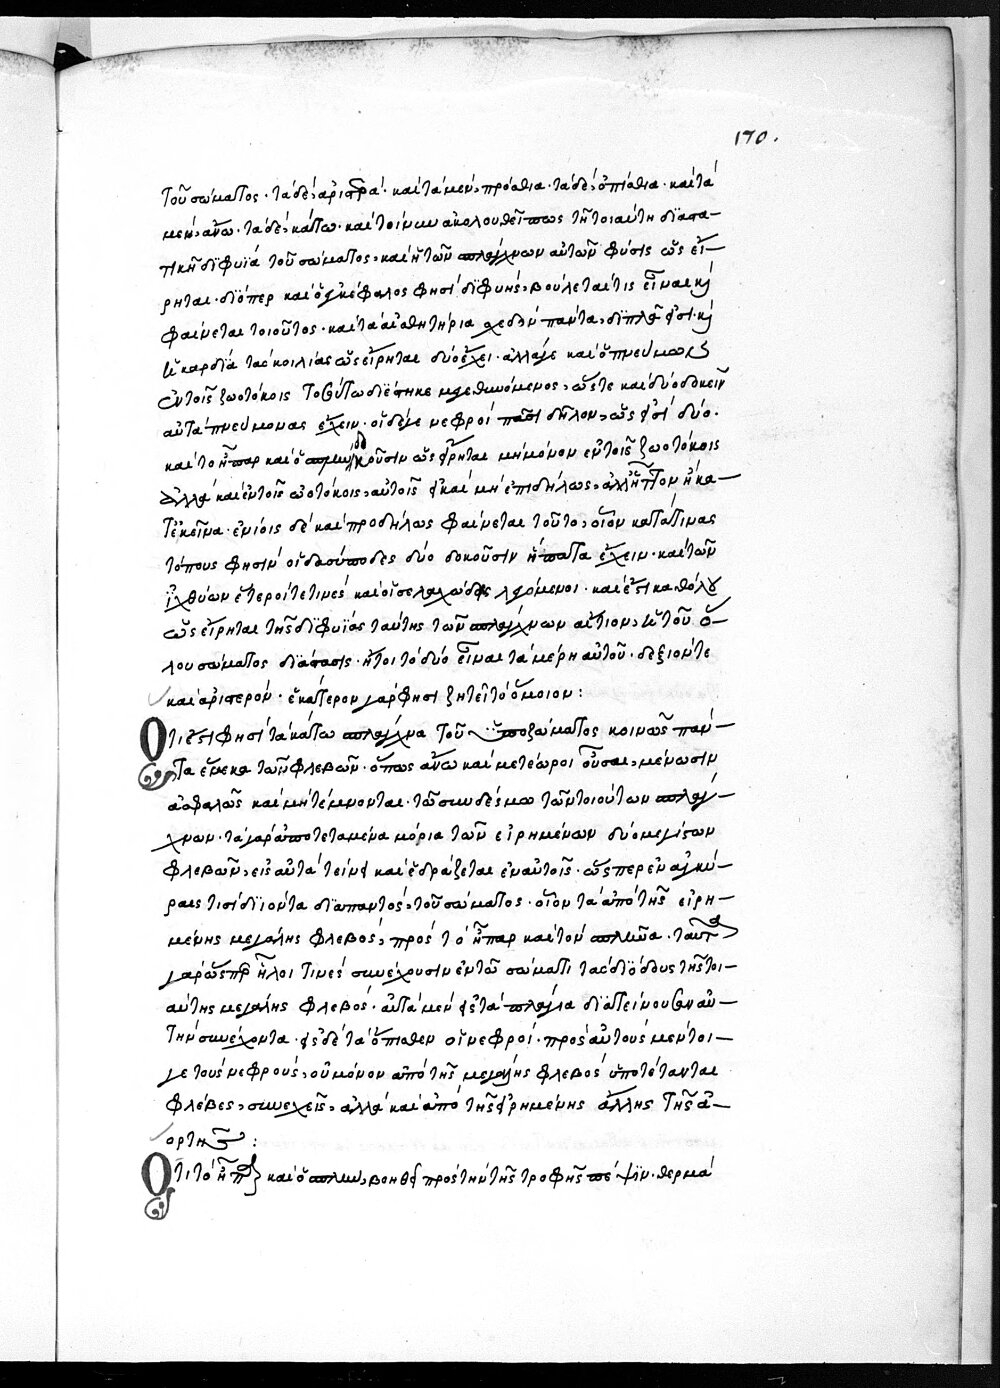 170.
τοῦ σώματος· τὰ δὲ, ἀριστερά· καὶ τὰ μὲν, πρόσθια· τὰ δὲ, ὀπίσθια· καὶ τὰ
μὲν, ἄνω· τὰ δὲ, κάτω· καὶ τοίνυν ἀκολουθεῖ πως τῇ τοιαύτῃ διαστα-
τικῇ διφυΐᾳ τοῦ σώματος, καὶ ἡ τῶν σπλάγχνων αὐτῶν φύσις ὡς εἴ-
ρηται· διόπερ καὶ ὁ ἐγκέφαλος φησὶ διφυής, βούλεταί τις εἶναι καὶ
φαίνεται τοιοῦτος· καὶ τὰ αἰσθητήρια σχεδὸν πάντα, διπλᾶ εἰσι· καὶ
ἡ καρδία τὰς κοιλίας ὡς εἴρηται δύο ἔχει· ἀλλά γε καὶ ὁ πνεύμων
ἐν τοῖς ζωοτόκοις τοσοῦτο διέστηκε μεριζόμενος, ὥστε καὶ δύο δοκεῖν
αὐτὰ πνεύμονας ἔχειν· οἱ δέ γε νεφροὶ πᾶσι δῆλον, ὡς εἰσὶ δύο·
καὶ τὸ ἧπαρ καὶ ὁ σπλὴν δοκοῦσιν ὡς εἴρηται μὴ μόνον ἐν τοῖς ζωοτόκοις
ἀλλὰ καὶ ἐν τοῖς ὠοτόκοις, αὐτοῖς εἰ καὶ μὴ ἐπιδήλως, ἀλλ' ἧττον ἢ κα-
τ' ἐκεῖνα· ἐνίοις δὲ καὶ προδήλως φαίνεται τοῦτο, οἷον κατά τινας
τόπους φησὶν οἱ δασύποδες δύο δοκοῦσιν ἥπατα ἔχειν· καὶ τῶν
ἰχθύων ἕτεροί τέ τινες καὶ οἱ σελαχώδεις λεγόμενοι· καὶ ἔστι καθόλου
ὡς εἴρηται τῆς διφυΐας ταύτης τῶν σπλάγχνων αἴτιον, ἡ τοῦ ὅ-
λου σώματος διάστασις· ἤτοι τὸ δύο εἶναι τὰ μέρη αὐτοῦ· δεξιόν τε
καὶ ἀριστερόν· ἑκάτερον γάρ φησι ζητεῖ τὸ ὅμοιον:
Ὅτι ἐστί φησι τὰ κάτω σπλάγχνα τοῦ ὑποζώματος κοινῶς πάν-
τα ἕνεκα τῶν φλεβῶν· ὅπως ἄνω καὶ μετέωροι οὖσαι, μένωσιν
ἀσφαλῶς καὶ μὴ τέμνονται· τῷ συνδέσμῳ τῶν τοιούτων σπλάγ-
χνων· τὰ γὰρ ἀποτεταμένα μόρια τῶν εἰρημένων δύο μεγίστων
φλεβῶν, εἰς αὐτὰ τείνει καὶ ἑδράζεται ἐν αὐτοῖς· ὥσπερ ἐν ἀγκύ-
ραις τισὶ διϊόντα διὰ παντὸς, τοῦ σώματος· οἷον τὰ ἀπὸ τῆς εἰρη-
μένης μεγάλης φλεβὸς, πρὸς τὸ ἧπαρ καὶ τὸν σπλῆνα· ταῦτα
γὰρ ὥσπερ ἧλοι τινὲς συνέχουσιν ἐν τῷ σώματι τὰς διόδους τῆς τοι-
αύτης μεγάλης φλεβός· αὐτὰ μὲν εἰς τὰ πλάγια διατείνουσιν αὐ-
τὴν συνέχοντα· εἰς δὲ τὰ ὄπισθεν οἱ νεφροί· πρὸς αὐτοὺς μέντοι-
γε τοὺς νεφροὺς, οὐ μόνον ἀπὸ τῆς μεγάλης φλεβὸς ὑποτέτανται
φλέβες, συνεχεῖς, ἀλλὰ καὶ ἀπὸ τῆς εἰρημένης ἄλλης τῆς ἀ-
ορτῆς:
Ὅτι τὸ ἧπαρ καὶ ὁ σπλὴν, βοηθεῖ πρὸς τὴν τῆς τροφῆς πέψιν· θερμὰ